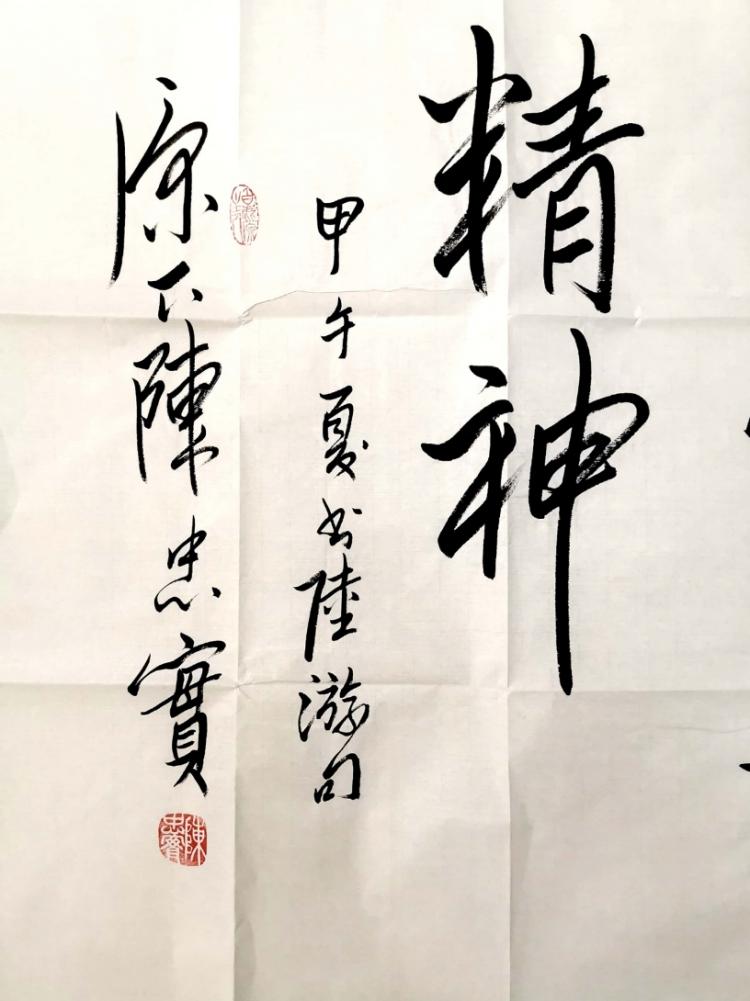 精神
甲午夏书陸游句
原下陳忠實
陳忠實